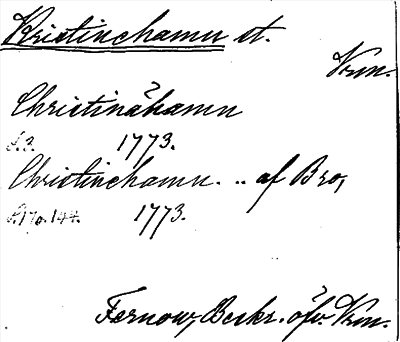 Kristinehamn st.
Vrm.
Christinæhamn
s.3. 1773.
Christinehamn. .. af Bro,
s.170.144. 1773.
Fernow, Beskr. öfv. Vrm.